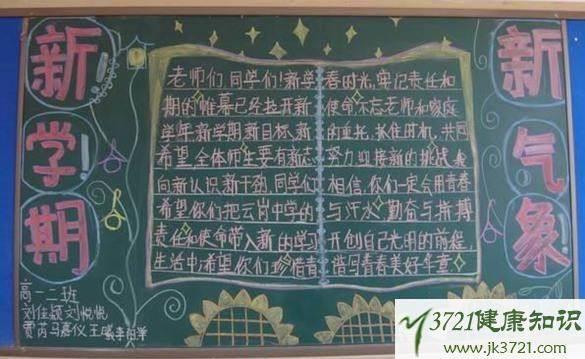 新学期
老师们同学们!新学
期的帷幕已经拉开新
学年新学期新目标、新
希望,全体师生要有新志
向新认识新干劲,同学们
希望你们把云岗中学的
责任和使命带入新的学习
生活中,希望你们珍惜青
春时光,牢记责任和
使命不忘老师和家庭
的重托,抓住时机,共同
努力迎接新的挑战.我
相信,你们一定会用青春
与汗水、勤奋与拼搏
开创自己光明的前程,
谱写青春美好年章
新气象
高一二班
刘佳颖刘悦悦
贾芮马嘉仪王
3721健康知识
www.jk3721.com